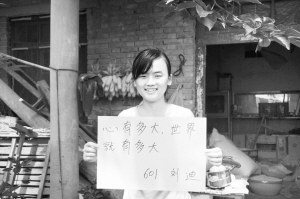 心有多大，世界
就有多大
601 刘迪